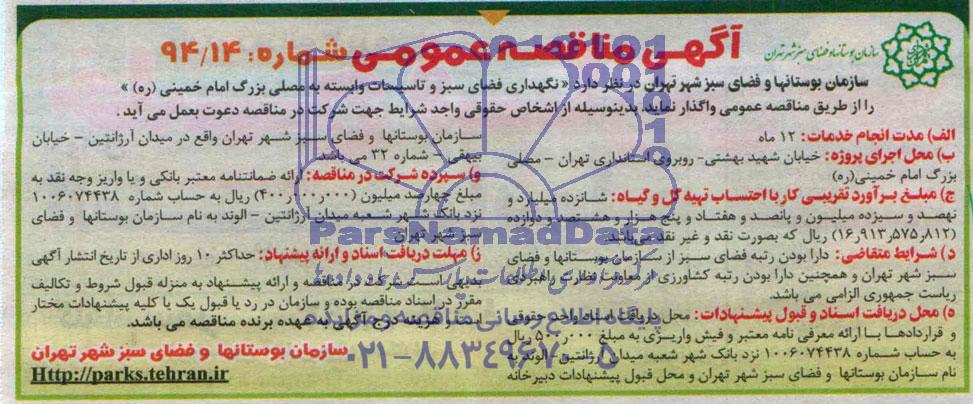 سازمان بوستانها و فضای سبز شهر تهران
آگهی مناقصه عمومی شماره: ۹۴/۱۴
سازمان بوستانها و فضای سبز شهر تهران در نظر دارد «نگهداری فضای سبز و تاسیسات وابسته به مصلی بزرگ امام خمینی (ره)»
را از طریق مناقصه عمومی واگذار نماید. بدینوسیله از اشخاص حقوقی واجد شرایط جهت شرکت در مناقصه دعوت بعمل می آید.
الف) مدت انجام خدمات: ۱۲ ماه
ب) محل اجرای پروژه: خیابان شهید بهشتی- روبروی استانداری تهران – مصلی
بزرگ امام خمینی(ره)
ج) مبلغ برآورد تقریبی کار با احتساب تهیه گل و گیاه: شانزده میلیارد و
نهصد و سیزده میلیون و پانصد و هفتاد و پنج هزار و هشتصد و دوازده
(۱۶,۹۱۳,۵۷۵,۸۱۲) ریال که بصورت نقد و غیر نقد می‌باشد.
د) شرایط متقاضی: دارا بودن رتبه فضای سبز از سازمان بوستانها و فضای
سبز شهر تهران و همچنین دارا بودن رتبه کشاورزی از معاونت نظارت راهبردی
ریاست جمهوری الزامی می باشد.
ه) محل دریافت اسناد و قبول پیشنهادات: محل دریافت اسناد واحد حقوقی
و قراردادها با ارائه معرفی نامه معتبر و فیش واریزی به مبلغ ۵۰۰٫۰۰۰ ریال
به حساب شماره ۱۰۰۶۰۷۴۴۳۸ نزد بانک شهر شعبه میدان آرژانتین – الوند به
نام سازمان بوستانها و فضای سبز شهر تهران و محل قبول پیشنهادات دبیرخانه
سازمان بوستانها و فضای سبز شهر تهران واقع در میدان آرژانتین – خیابان
بیهقی – شماره ۳۲ می باشد.
و) سپرده شرکت در مناقصه: ارائه ضمانتنامه معتبر بانکی و یا واریز وجه نقد به
مبلغ چهارصد میلیون (۴۰۰٫۰۰۰٫۰۰۰) ریال به حساب شماره ۱۰۰۶۰۷۴۴۳۸
نزد بانک شهر شعبه میدان آرژانتین – الوند به نام سازمان بوستانها و فضای
سبز شهر تهران
ز) مهلت دریافت اسناد و ارائه پیشنهاد: حداکثر ۱۰ روز اداری از تاریخ انتشار آگهی
بدیهی است شرکت در مناقصه و ارائه پیشنهاد به منزله قبول شروط و تکالیف
مقرر در اسناد مناقصه بوده و سازمان در رد یا قبول یک یا کلیه پیشنهادات مختار
است. هزینه درج آگهی به عهده برنده مناقصه می باشد.
سازمان بوستانها و فضای سبز شهر تهران
Http://parks.tehran.ir
ParsNamadData
پایگاه اطلاع رسانی مناقصه و مزایده
۰۲۱-۸۸۳۴۹۶۷۰-۵